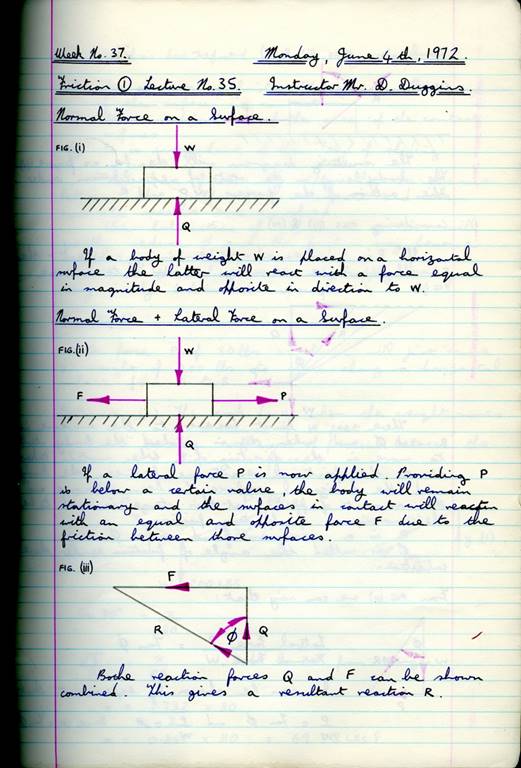 Week No. 37. Monday, June 4th, 1972.
Friction ① Lecture No. 35. Instructor Mr. D. Duggins.
Normal Force on a Surface.
FIG. (i)
W
Q
If a body of weight W is placed on a horizontal
surface the latter will react with a force equal
in magnitude and opposite in direction to W.
Normal Force + Lateral Force on a Surface.
FIG. (ii)
W
F P
Q
If a lateral force P is now applied. Providing P
is below a certain value, the body will remain
stationary and the surfaces in contact will reaction
with an equal and opposite force F due to the
friction between those surfaces.
FIG. (iii)
F
R ϕ Q
Bothe reaction forces Q and F can be shown
combined. This gives a resultant reaction R.